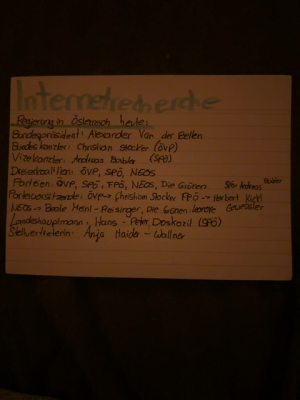 Internetrecherche
Regierung in Österreich heute:
Bundespräsident: Alexander Van der Bellen
Bundeskanzler: Christian Stocker (ÖVP)
Vizekanzler: Andreas Babler (SPÖ)
Dreierkoalition: ÖVP, SPÖ, NEOS
Parteien: ÖVP, SPÖ, FPÖ, NEOS, Die Grünen SPÖ- Andreas Babler
Parteivorsitzende: ÖVP → Christian Stocker FPÖ → Herbert Kickl
NEOS → Beate Meinl-Reisinger, Die Grünen: Leonore Gewessler
Landeshauptmann: Hans-Peter Doskozil (SPÖ)
Stellvertreterin: Anja Haider-Wallner